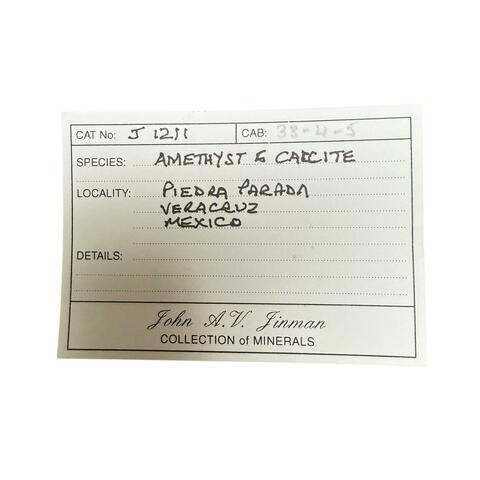 CAT No: J 1211 CAB: 38-4-5
SPECIES: AMETHYST & CALCITE
LOCALITY: PIEDRA PARADA
VERACRUZ
MEXICO
DETAILS:
John A.V. Jinman
COLLECTION of MINERALS